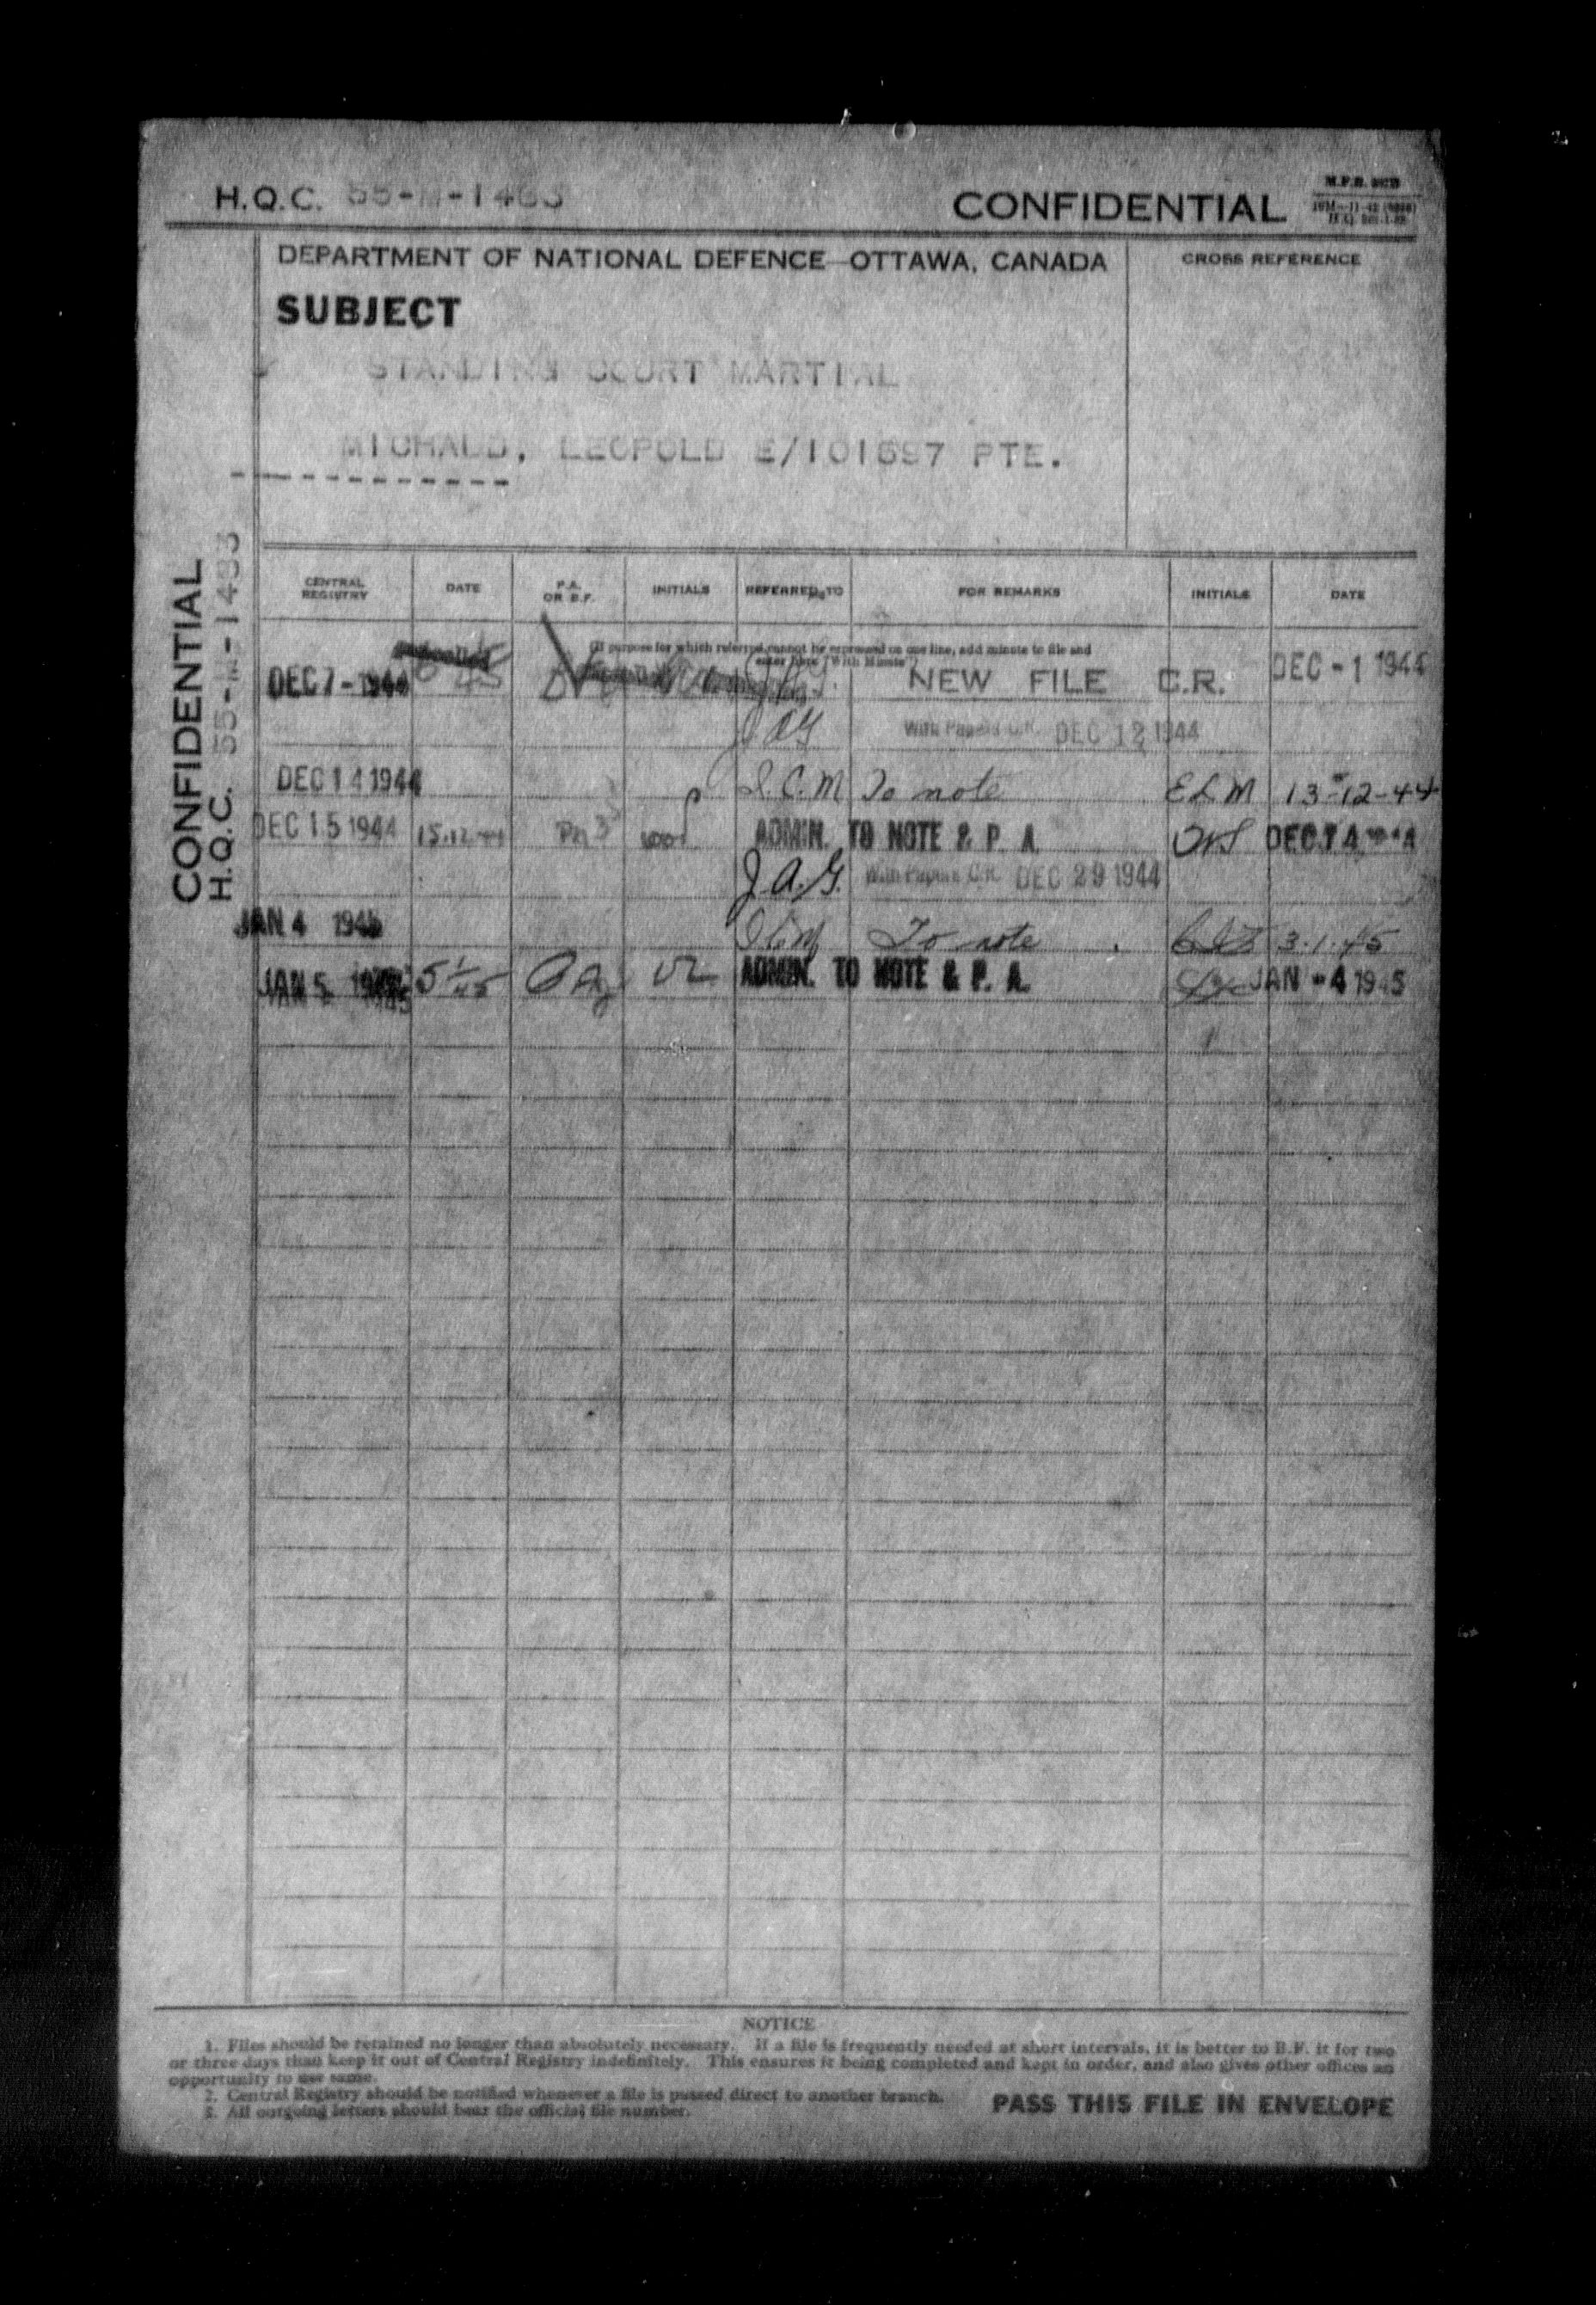 H.Q.C. 55-M-1483
CONFIDENTIAL
DEPARTMENT OF NATIONAL DEFENCE OTTAWA, CANADA
CROSS REFERENCE
SUBJECT
STANDING COURT MARTIAL
MICHAUD, LEOPOLD E/101697 PTE.
CONFIDENTIAL
H.Q.C. 55-M-1483
CENTRAL REGISTRY DATE P.A. OR B.F. INITIALS REFERRED TO FOR REMARKS INITIALS DATE
(If purpose for which referred cannot be expressed on one line, add minute to file and
enter here "With Minute")
DEC 7-1944 NEW FILE C.R. DEC -1 1944
JAG With Papers C.R. DEC 12 1944
DEC 14 1944 To note ELM 13-12-44
DEC 15 1944 15.12.44 ADMIN. TO NOTE & P. A. DEC 14
J.A.G. With Papers C.R. DEC 29 1944
JAN 4 1945 To note 3.1.45
JAN 5 ADMIN. TO NOTE & P. A. JAN -4 1945
NOTICE
1. Files should be retained no longer than absolutely necessary. If a file is frequently needed at short intervals, it is better to B.F. it for two
or three days than keep it out of Central Registry indefinitely. This ensures it being completed and kept in order, and also gives other offices an
opportunity to use same.
2. Central Registry should be notified whenever a file is passed direct to another branch.
3. All outgoing letters should bear the official file number.
PASS THIS FILE IN ENVELOPE